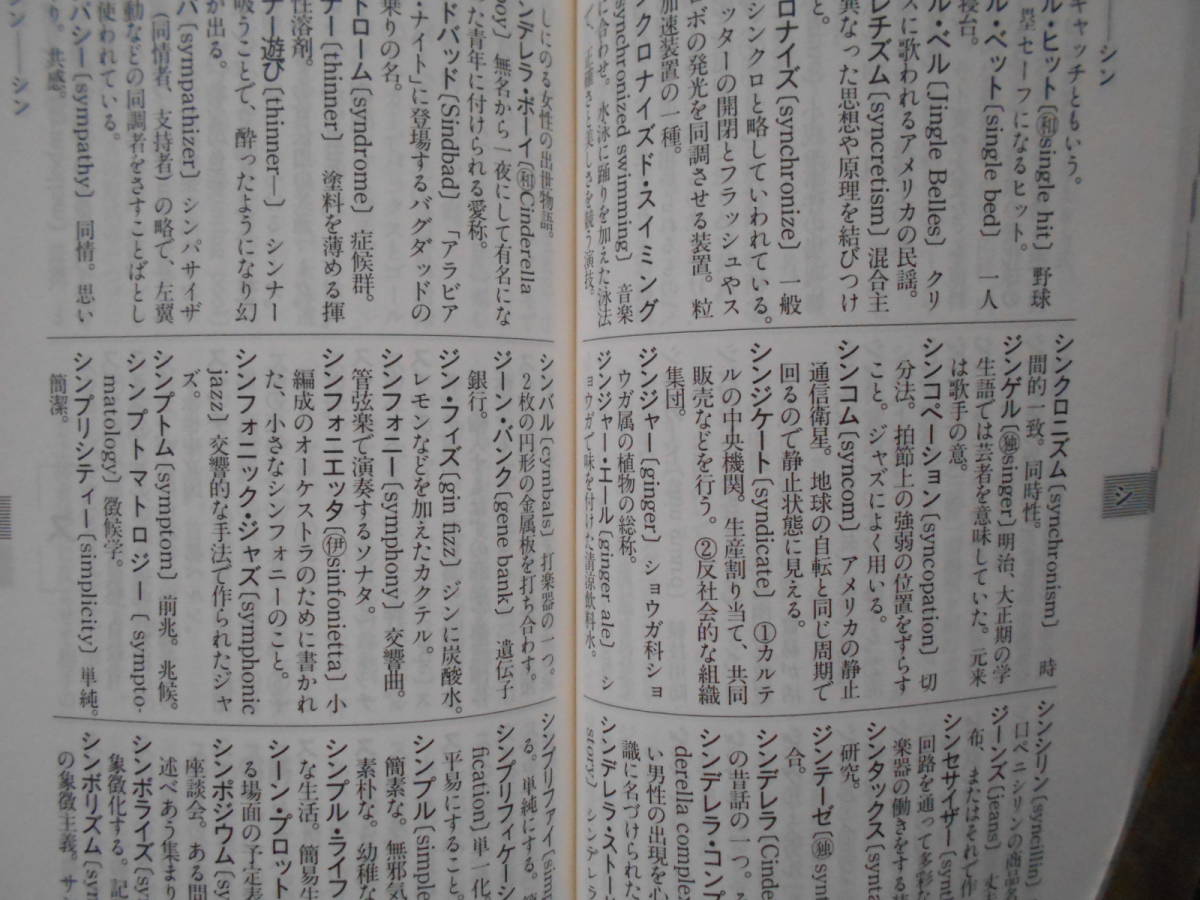 シン——シン
——シン
シ
キャッチともいう。
ル・ヒット〔㊋single hit〕 野球
塁セーフになるヒット。
ル・ベット〔single bed〕 一人
寝台。
ル・ベル〔Jingle Belles〕 クリ
スに歌われるアメリカの民謡。
レチズム〔syncretism〕 混合主
異なった思想や原理を結びつけ
と。
ロナイズ〔synchronize〕 一般
シンクロと略していわれている。
ッターの開閉とフラッシュやス
ロボの発光を同調させる装置。粒
加速装置の一種。
ンクロナイズド・スイミング
〔synchronized swimming〕 音楽
に合わせ。水泳に踊りを加えた泳法
正確さと美しさを競う演技。
しにのる女性の出世物語。
ンデレラ・ボーイ〔㊋Cinderella
boy〕 無名から一夜にして有名にな
った青年に付けられる愛称。
ドバッド〔Sindbad〕 「アラビア
・ナイト」に登場するバグダッドの
乗りの名。
トローム〔syndrome〕 症候群。
ナー〔thinner〕 塗料を薄める揮
性溶剤。
ナー遊び〔thinner—〕 シンナー
吸うことで、酔ったようになり幻
が出る。
パ〔sympathizer〕 シンパサイザ
（同情者、支持者）の略で、左翼
動などの同調者をさすことばとし
使われている。
パシー〔sympathy〕 同情。思い
り。共感。
シンクロニズム〔synchronism〕 時
間的一致。同時性。
ジンゲル〔㊋singer〕明治、大正期の学
生語では芸者を意味していた。元来
は歌手の意。
シンコペーション〔syncopation〕 切
分法。拍節上の強弱の位置をずらす
こと。ジャズによく用いる。
シンコム〔syncom〕 アメリカの静止
通信衛星。地球の自転と同じ周期で
回るので静止状態に見える。
シンジケート〔syndicate〕 ①カルテ
ルの中央機関。生産割り当て、共同
販売などを行う。②反社会的な組織
集団。
ジンジャー〔ginger〕 ショウガ科ショ
ウガ属の植物の総称。
ジンジャー・エール〔ginger ale〕 シ
ョウガで味を付けた清涼飲料水。
シンバル〔cymbals〕 打楽器の一つ。
2枚の円形の金属板を打ち合わす。
ジーン・バンク〔gene bank〕 遺伝子
銀行。
ジン・フィズ〔gin fizz〕 ジンに炭酸水。
レモンなどを加えたカクテル。
シンフォニー〔symphony〕 交響曲。
管弦楽で演奏するソナタ。
シンフォニエッタ〔㊋sinfonietta〕 小
編成のオーケストラのために書かれ
た、小さなシンフォニーのこと。
シンフォニック・ジャズ〔symphonic
jazz〕 交響的な手法で作られたジャ
ズ。
シンプトム〔symptom〕 前兆。兆候。
シンプトマトロジー〔sympto-
matology〕 徴候学。
シンプリシティー〔simplicity〕 単純。
簡潔。
シンシリン〔syncillin〕
口ペニシリンの商品
ジーンズ〔jeans〕 丈
布、またはそれで作
シンセサイザー〔synth
回路を通って多彩な
楽器の働きをする
シンタックス〔synta
研究。
ジンテーゼ〔㊋synt
合。
シンデレラ〔Cinde
の昔話の一つ。
シンデレラ・コンプ
derella complex
い男性の出現を心
識に名づけられた
シンデレラ・スト
story〕 シンデレラ
シンプリファイ〔sim
る。単純にする。
シンプリフィケーシ
fication〕単一化
平易にすること。
シンプル〔simple
簡素な。無邪気
素朴な。幼稚な
シンプル・ライフ
な生活。簡易生
シーン・プロット
る場面の予定表
シンポジウム〔sy
座談会。ある問
述べあう集まり
シンボライズ〔sy
象徴化する。記
シンボリズム〔sym
の象徴主義。サン